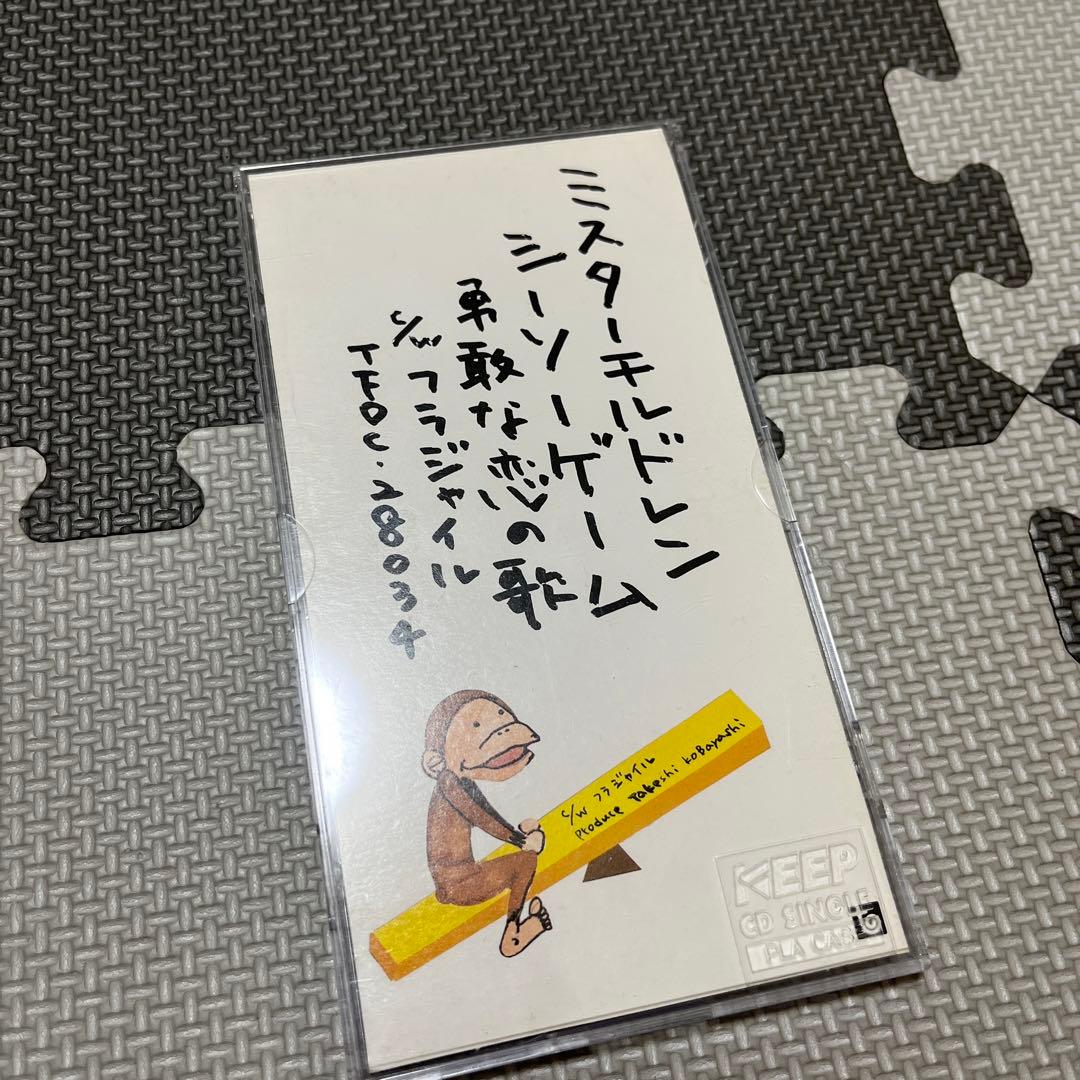 ミスターチルドレン
シーソーゲーム
勇敢な恋の歌
c/w フラジャイル
TFDC.28034
c/w フラジャイル
Produce Takeshi KoBayashi
KEEP
CD SINGLE
PLA CASE